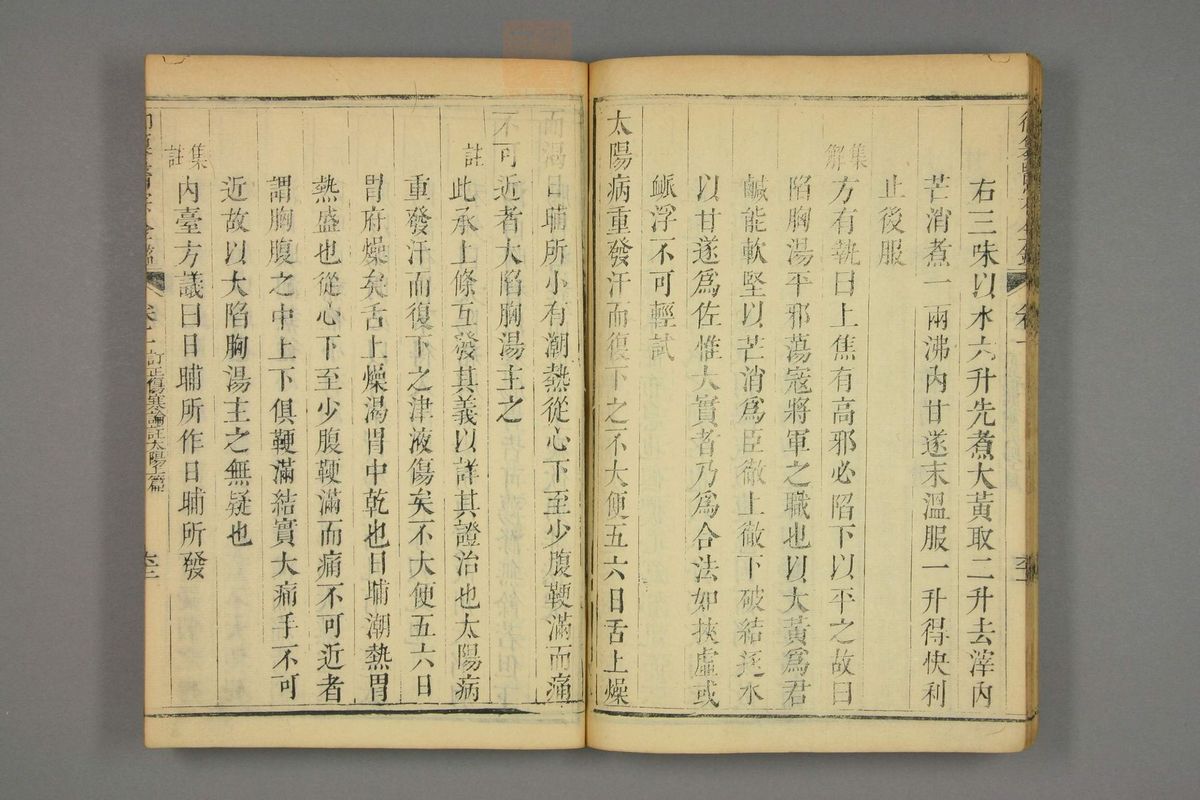 右三味以水六升先煮大黃取二升去滓內
芒消煮一兩沸內甘遂末溫服一升得快利
止後服
集解方有執曰上焦有高邪必陷下以平之故曰
陷胸湯平邪蕩寇將軍之職也以大黃爲君
鹹能軟堅以芒消爲臣徹上徹下破結逐水
以甘遂爲佐惟大實者乃爲合法如挾虛或
脈浮不可輕試
太陽病重發汗而復下之不大便五六日舌上燥
而渴日晡所小有潮熱從心下至少腹鞕滿而痛
不可近者大陷胸湯主之
註此承上條互發其義以詳其證治也太陽病
重發汗而復下之津液傷矣不大便五六日
胃府燥矣舌上燥渴胃中乾也日晡潮熱胃
熱盛也從心下至少腹鞕滿而痛不可近者
謂胸腹之中上下俱鞕滿結實大痛手不可
近故以大陷胸湯主之無疑也
集註內臺方議曰日晡所作日晡所發
訂正傷寒論註太陽上篇